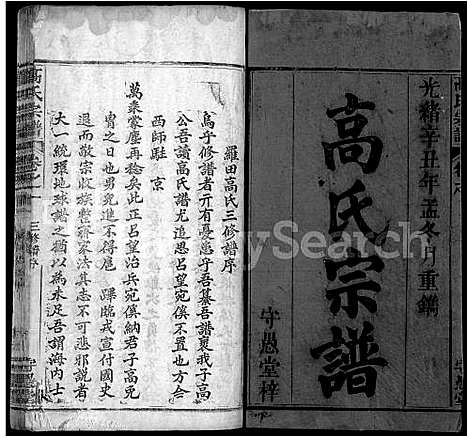 光緒辛丑年孟冬月重鐫
高氏宗譜
守愚堂梓
羅田高氏三修譜序
烏乎修譜者亦有憂患乎吾纂吾譜裒我子高
公吾讀高氏譜尤追思占望宛儀不置也方今
西師駐京
萬乘蒙塵再稔矣正占望治兵宛儀納君子高免
胄之日也男兒進不得扈蹕臨戎宣付國史
退而敬宗收族整齊家法真忘不可悲邪說者
大一統環地球譜之猶以為未足吾謂海內士
高氏宗譜
三修譜序
FamilySearch